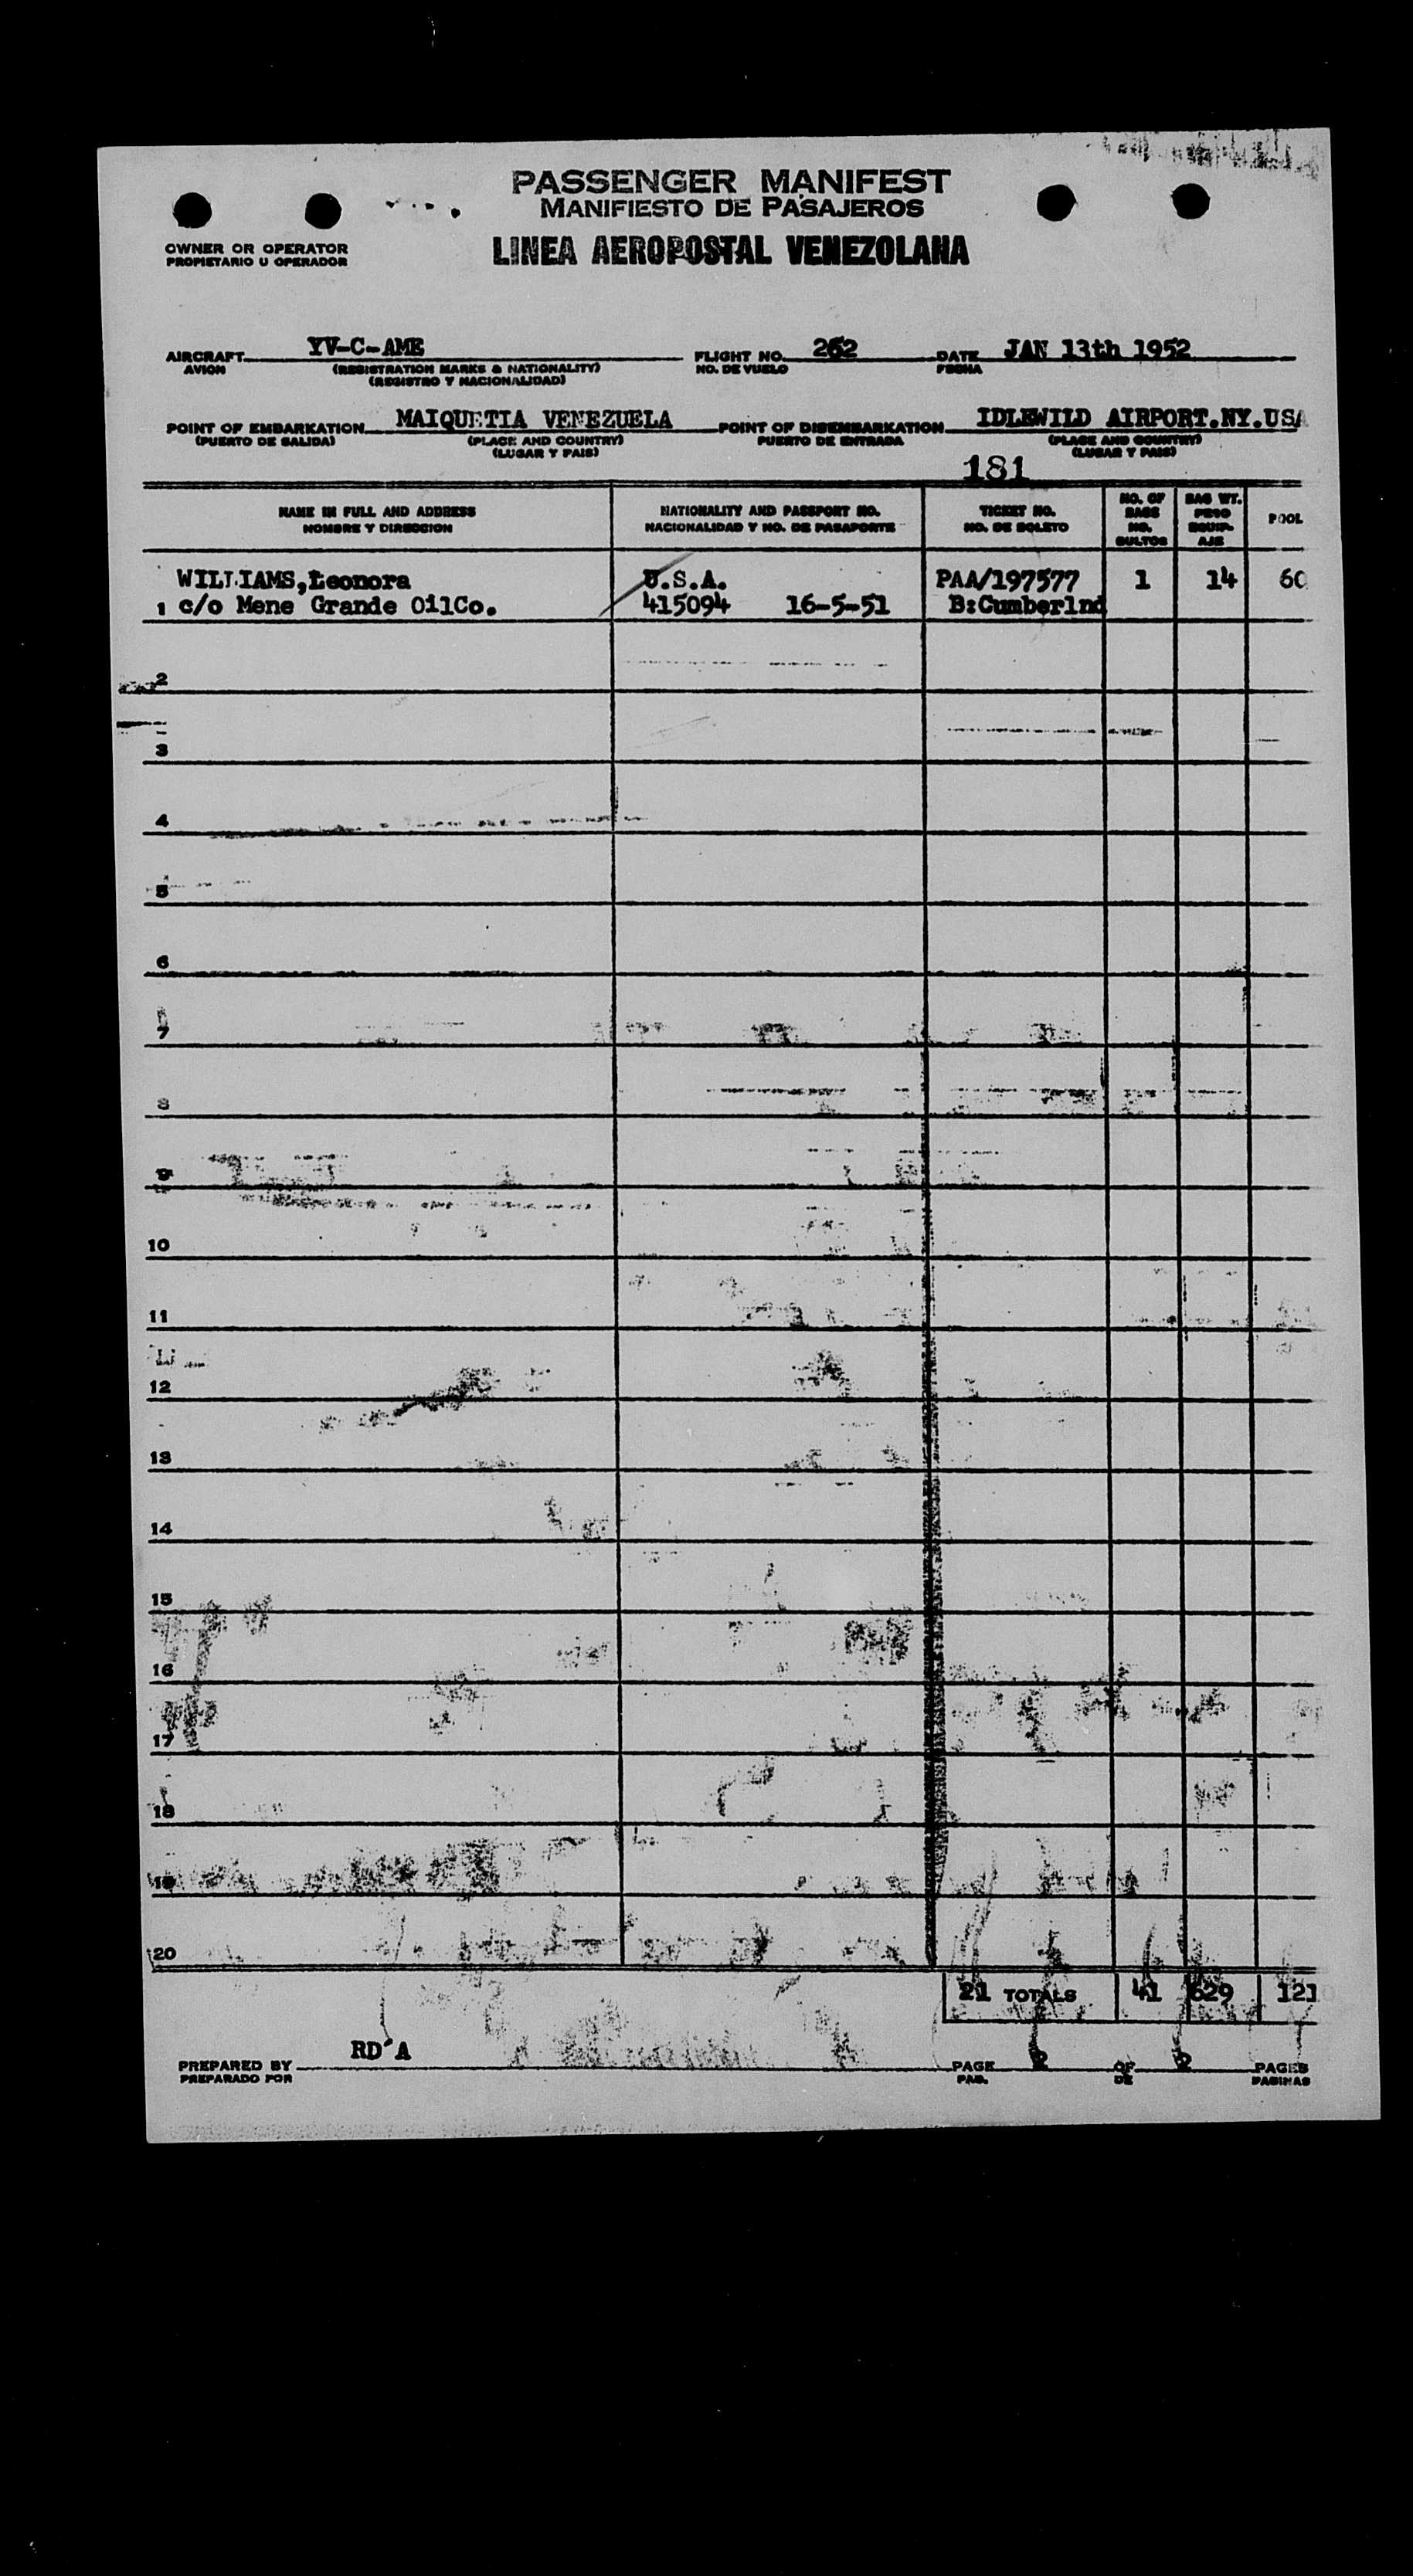 PASSENGER MANIFEST
MANIFIESTO DE PASAJEROS
OWNER OR OPERATOR
PROPIETARIO U OPERADOR
LINEA AEROPOSTAL VENEZOLANA
AIRCRAFT YV-C-AME FLIGHT NO. 262 DATE JAN 13th 1952
AVION (REGISTRATION MARKS & NATIONALITY) NO. DE VUELO FECHA
(REGISTRO Y NACIONALIDAD)
POINT OF EMBARKATION MAIQUETIA VENEZUELA POINT OF DISEMBARKATION IDLEWILD AIRPORT.NY.USA
(PUERTO DE SALIDA) (PLACE AND COUNTRY) PUERTO DE ENTRADA (PLACE AND COUNTRY)
(LUGAR Y PAIS) (LUGAR Y PAIS)
181
NAME IN FULL AND ADDRESS NATIONALITY AND PASSPORT NO. TICKET NO. NO. OF BAGS BAG WT. POOL
NOMBRE Y DIRECCION NACIONALIDAD Y NO. DE PASAPORTE NO. DE BOLETO NO. BULTOS PESO EQUIP-AJE
WILLIAMS,Leonora U.S.A. PAA/197577 1 14 60
1 c/o Mene Grande OilCo. 415094 16-5-51 B:Cumberlnd
2
3
4
5
6
7
8
9
10
11
12
13
14
15
16
17
18
19
20
21 TOTALS 41 629 121
RD'A
PREPARED BY PAGE 2 OF 2 PAGES
PREPARADO POR PAG. DE PAGINAS